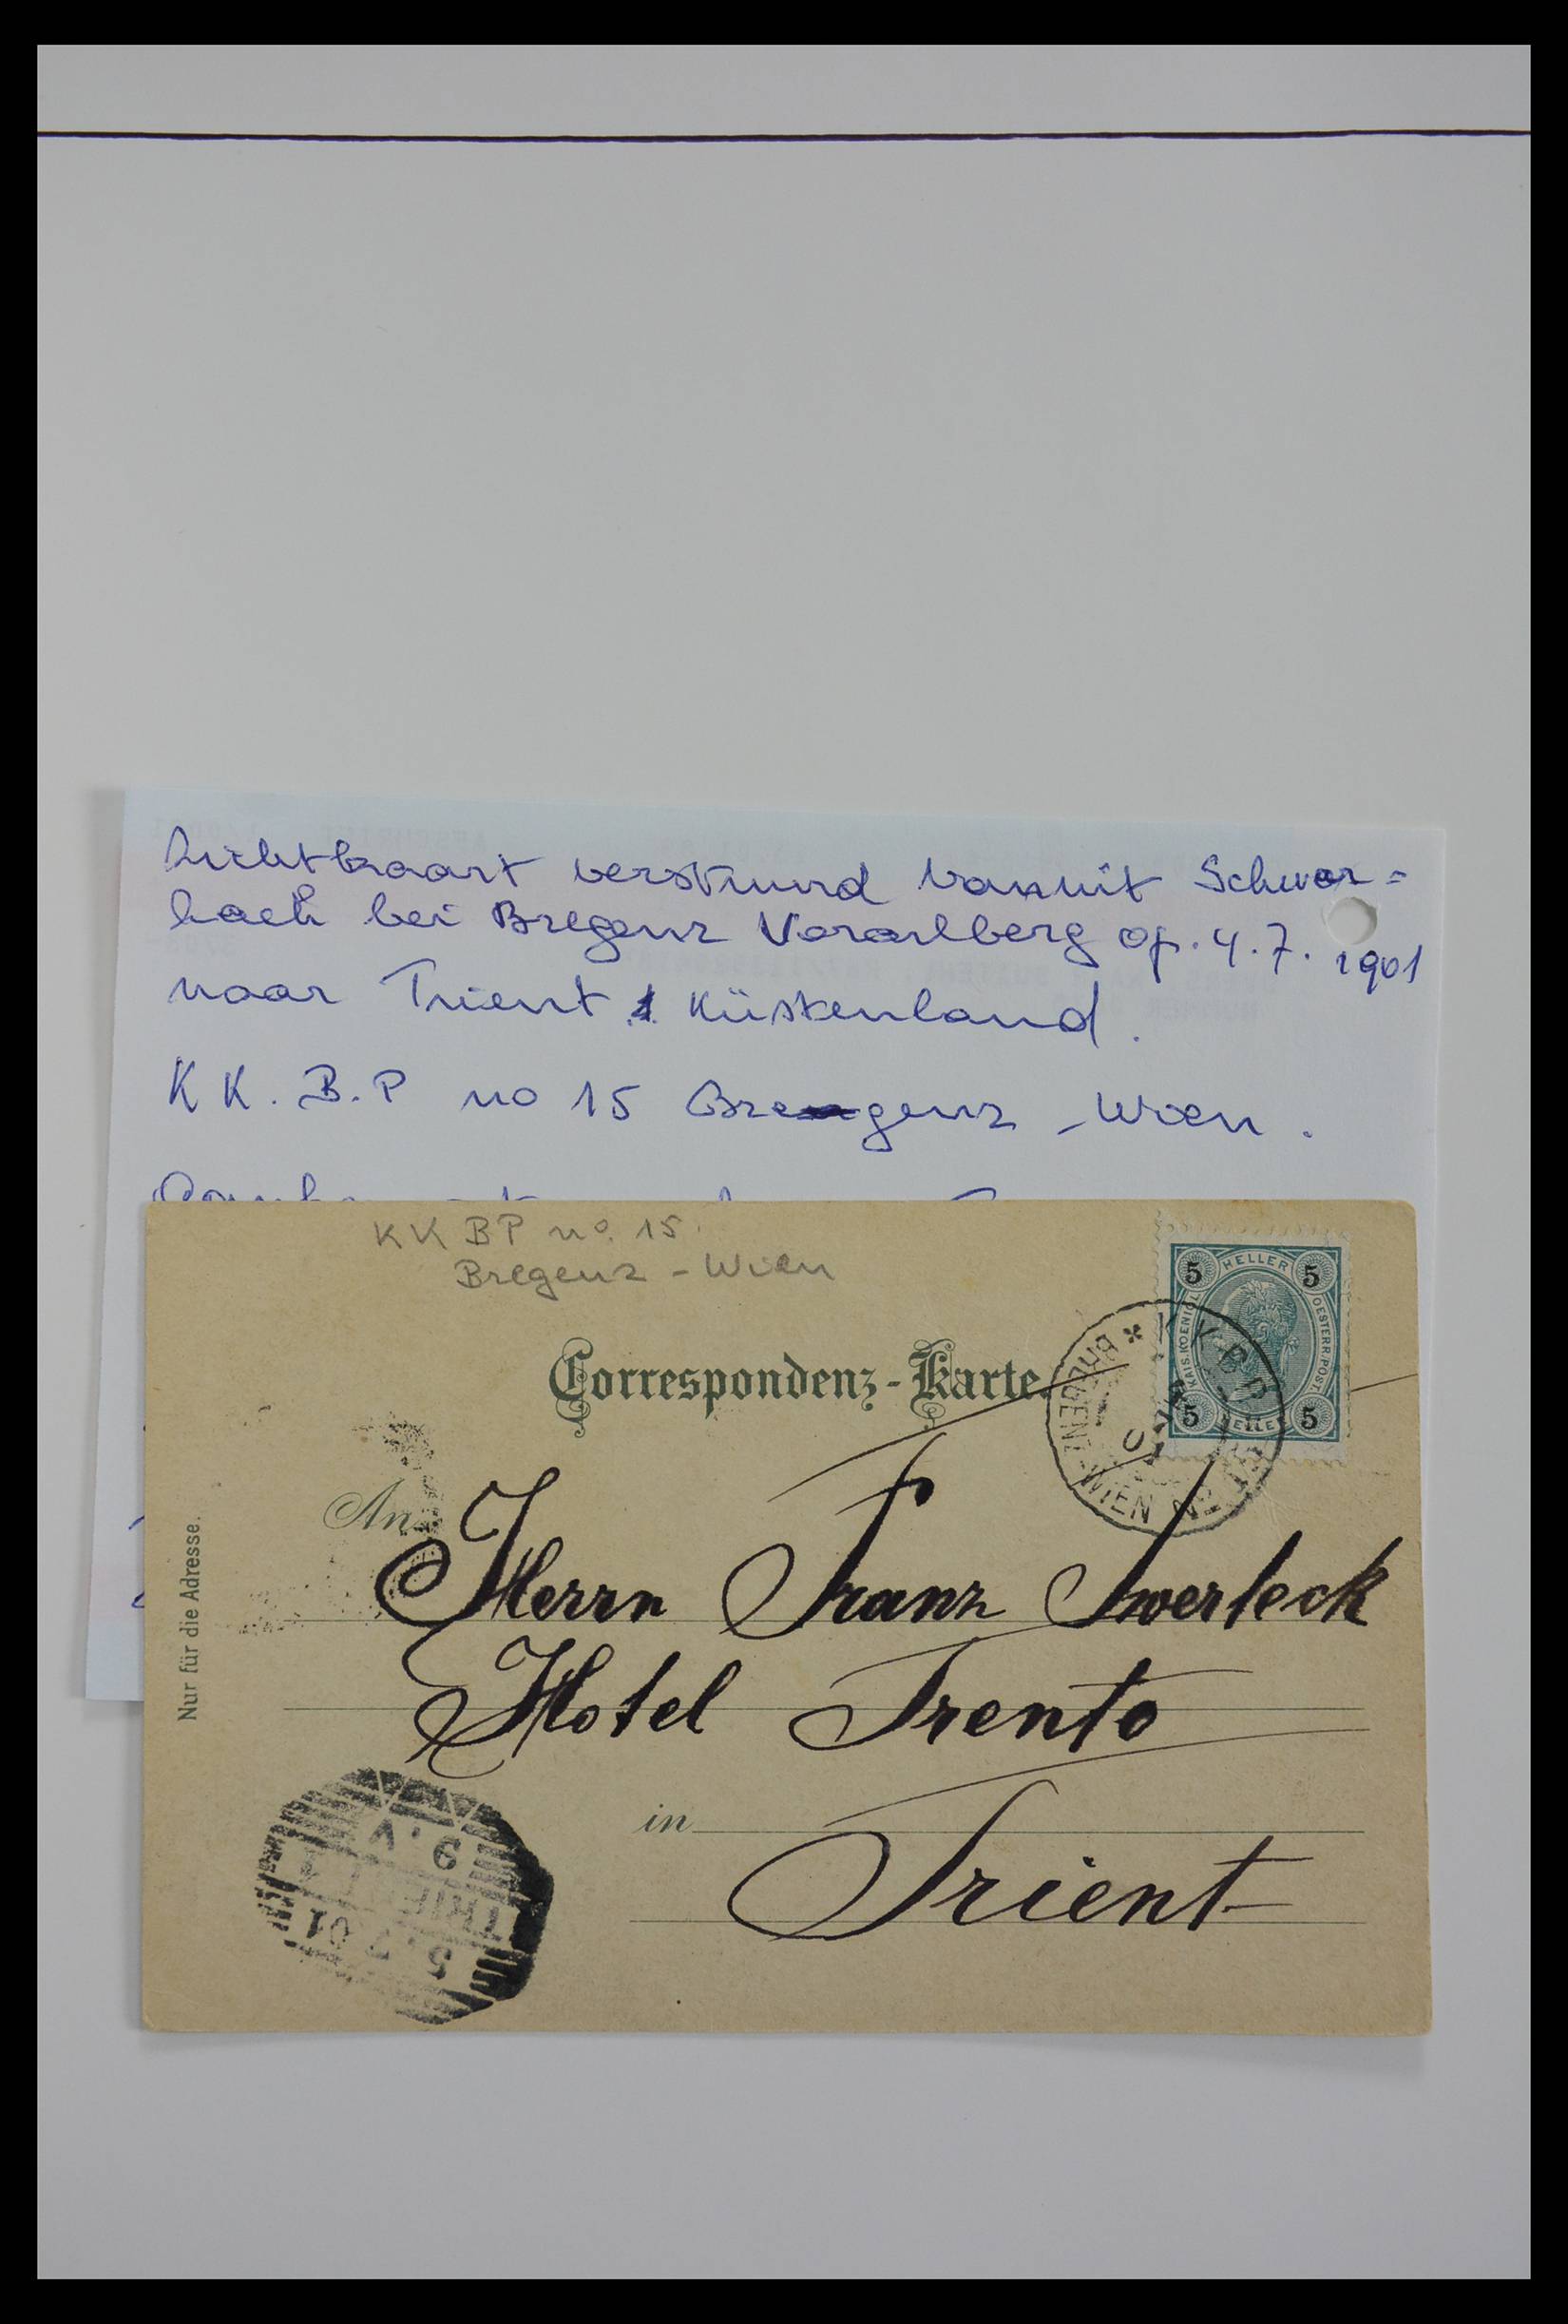 Lichtkaart verstuurd vanuit Schwar=
bach bei Bregenz Vorarlberg op. 4.7. 1901
naar Trient 1 Küstenland.
KK. B.P no 15 Bregenz - Wien.
KK BP no. 15.
Bregenz - Wien
HELLER
5 5
KAIS.KOENIGL. OESTERR.POST.
5 5
BREGENZ-WIEN No 15
Correspondenz-Karte.
An
Herrn Franz Swerteck
Hotel Trento
in
Trient
Nur für die Adresse.
9.V
TRIENT 1
5.7.01